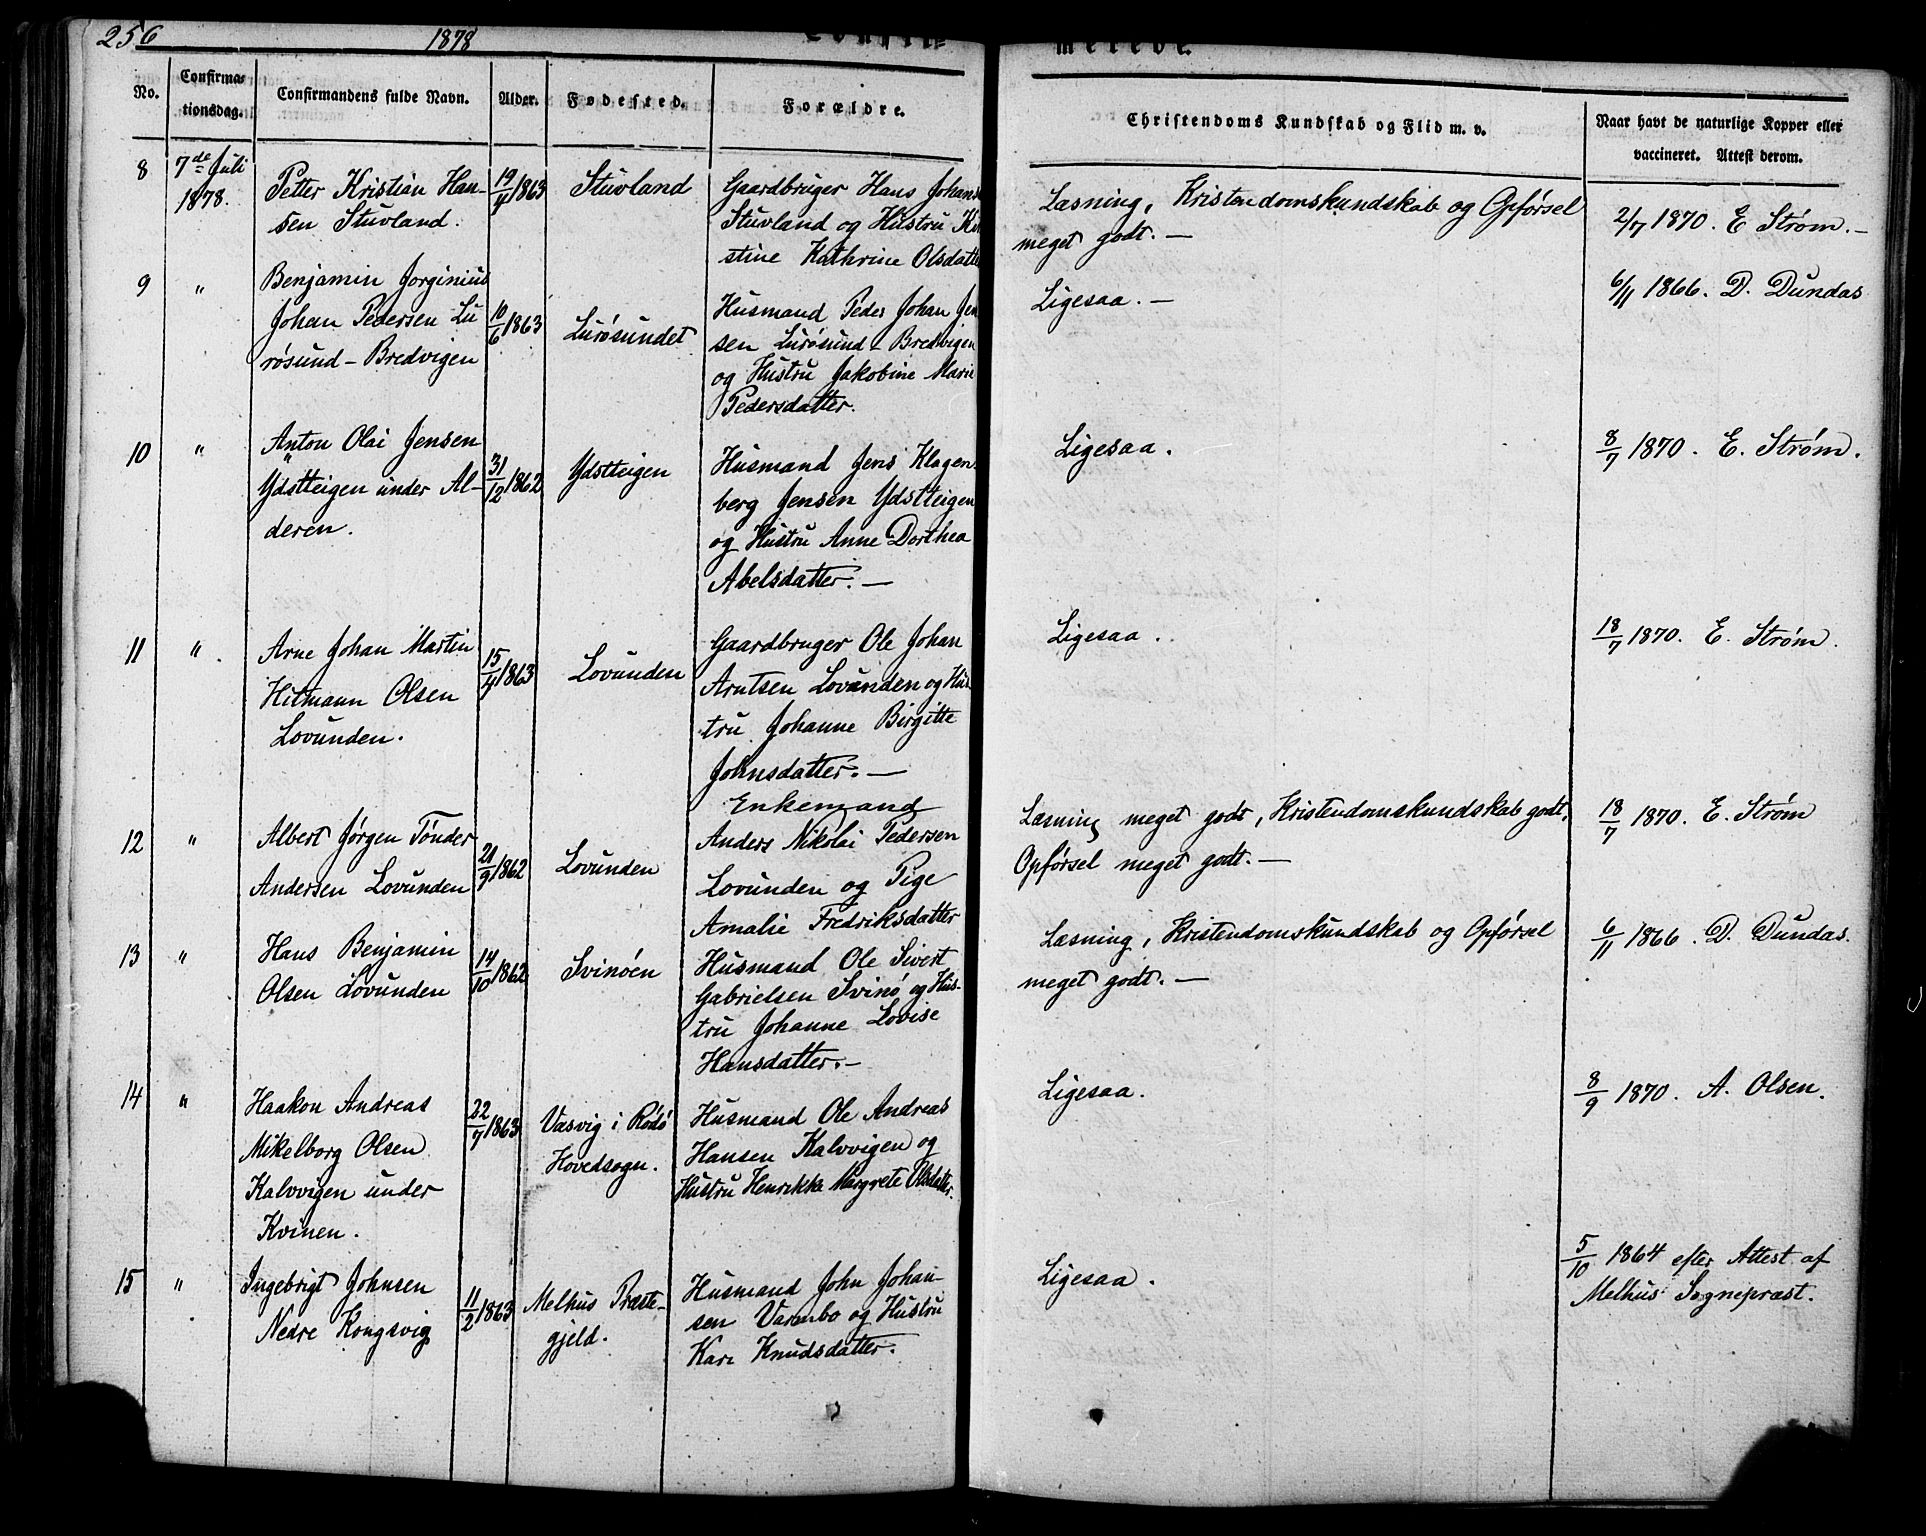 256
1878
merede.
No.
Confirma-
tionsdag.
Confirmandens fulde Navn.
Alder.
Fødested.
Forældre.
Christendoms Kundskab og Flid m. v.
Naar havt de naturlige Kopper eller
vaccineret. Attest derom.
8
7de Juli
1878.
Petter Kristian Han-
sen Stuvland.
19/4 1863
Stuvland
Gaardbruger Hans Johans
Stuvland og Hustru
stine Kathrine Olsdatte
Læsning, Kristendomskundskab og Opførsel
meget godt. —
2/7 1870. E Strøm. —
9
"
Benjamin Jorginius
Johan Pedersen Lu
røsund - Bredvigen
10/6 1863
Lurøsundet
Husmand Peder Johan Jen
sen Lurøsund - Bredvigen
og Hustru Jakobine Marie
Pedersdatter.
Ligesaa. —
6/11 1866. D. Dundas
10
"
Anton Olai Jensen
Ydstteigen under Al-
deren.
31/12 1862
Ydstteigen
Husmand Jens Klagen
berg Jensen Ydstteigen
og Hustru Anne Dorthea
Abelsdatter. —
Ligesaa.
8/7 1870. E. Strøm.
11
"
Arne Johan Martin
Hitmann Olsen
Lovunden.
15/4 1863
Lovunden
Gaardbruger Ole Johan
Arntsen Lovunden og Hus-
tru Johanne Birgitte
Johnsdatter. —
Ligesaa.
18/7 1870. E. Strøm.
12
"
Albert Jørgen Tønder
Andersen Lovunden
21/9 1862
Lovunden
Enkemand
Anders Nikolai Pedersen
Lovunden og Pige
Amalie Fredriksdatter
Læsning meget godt, Kristendomskundskab godt,
Opførsel meget godt. —
18/7 1870. E. Strøm
13
"
Hans Benjamin
Olsen Lovunden
14/10 1862
Svinøen
Husmand Ole Sivert
Gabrielsen Svinø og Hus-
tru Johanne Lovise
Hansdatter. —
Læsning, Kristendomskundskab og Opførsel
meget godt. —
6/11 1866. D. Dundas.
14
"
Haakon Andreas
Mikelborg Olsen
Kalvvigen under
Kvinen.
22/7 1863
Væsvig i Rødø
Hovedsogn.
Husmand Ole Andreas
Hansen Kalvvigen og
Hustru Henrikke Margrete Olsdatter.
Ligesaa.
8/9 1870. A. Olsen.
15
"
Ingebrigt Johnsen
Nedre Kongsvig
11/2 1863
Melhus Præste-
gjeld.
Husmand John Johan-
sen Varmbo og Hustru
Kari Knudsdatter.
Ligesaa.
5/10 1864 efter Attest af
Melhus Sognepræst.